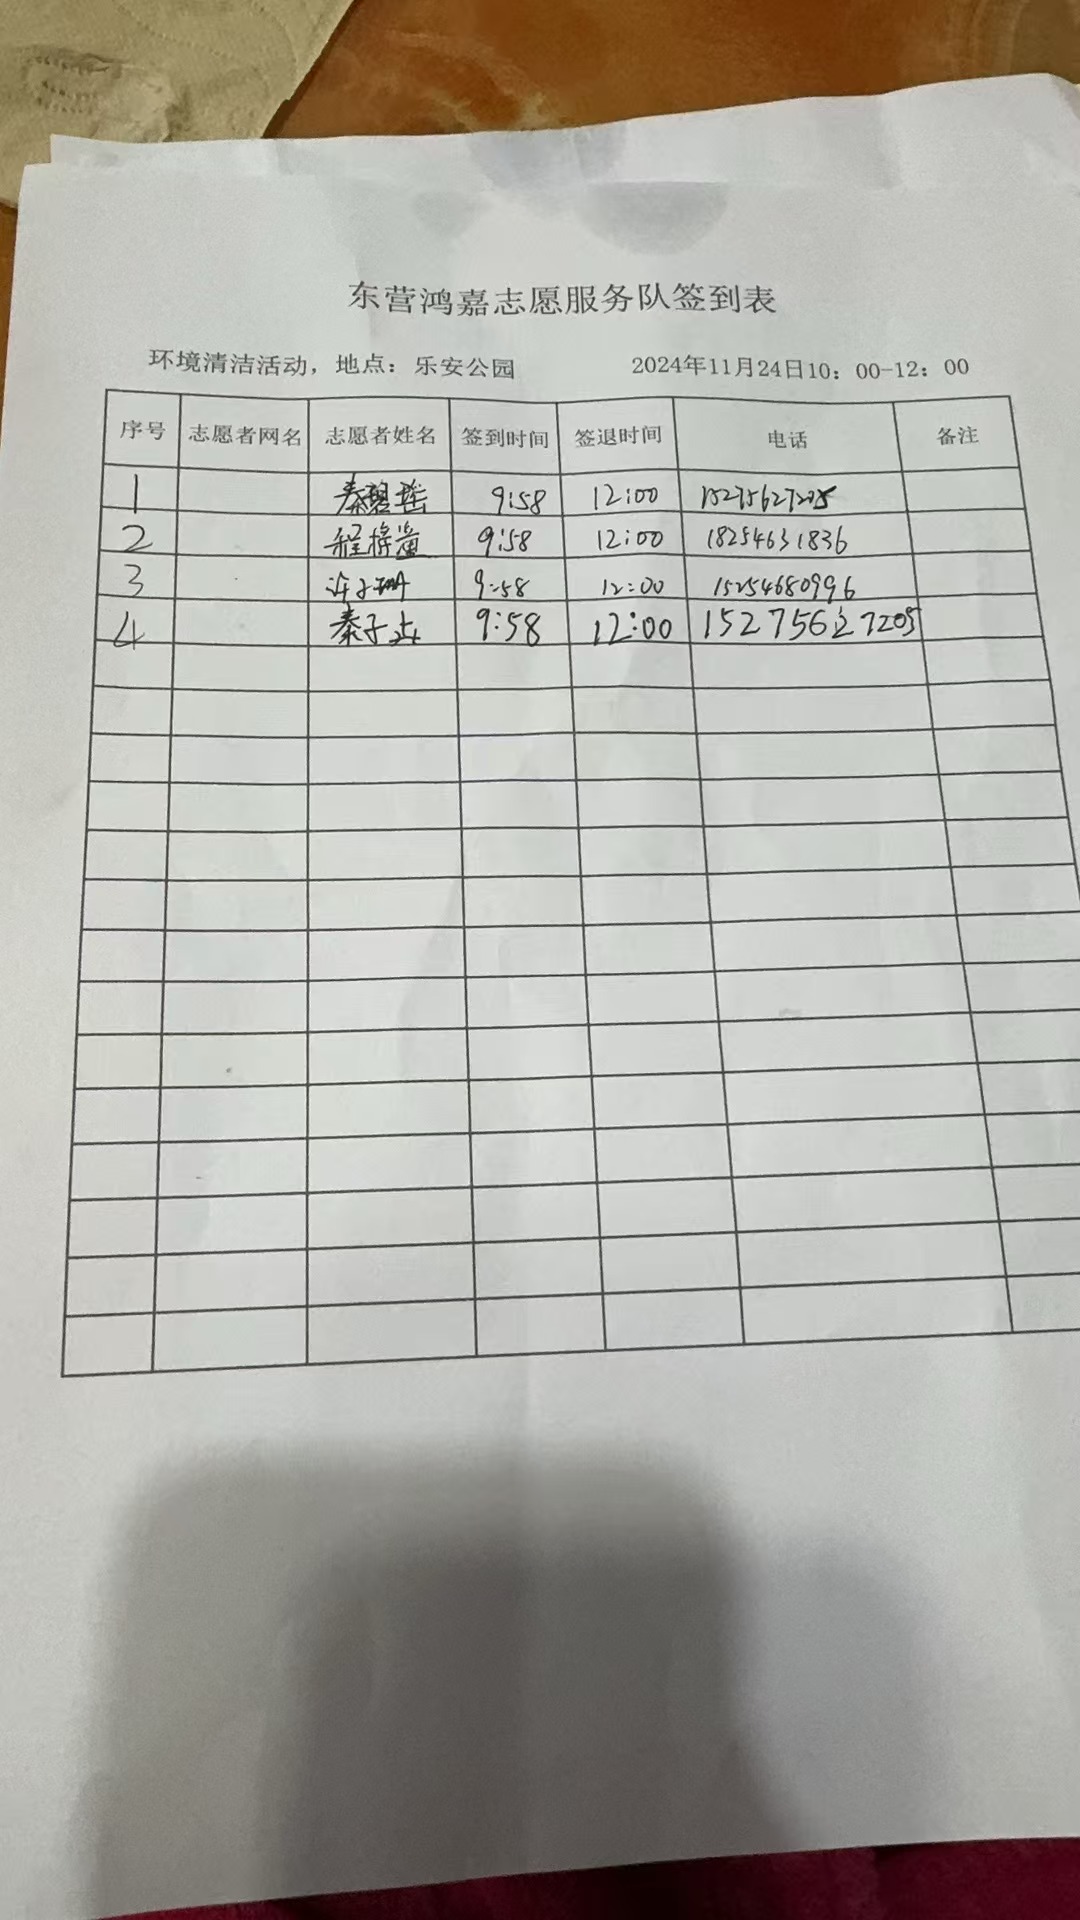 东营鸿嘉志愿服务队签到表
环境清洁活动，地点：乐安公园 2024年11月24日10：00-12：00
序号 志愿者网名 志愿者姓名 签到时间 签退时间 电话 备注
1 秦碧瑶 9:58 12:00 15275627205
2 程梓萱 9:58 12:00 18254631836
3 许子珊 9:58 12:00 15254680996
4 秦子 9:58 12:00 15275627205